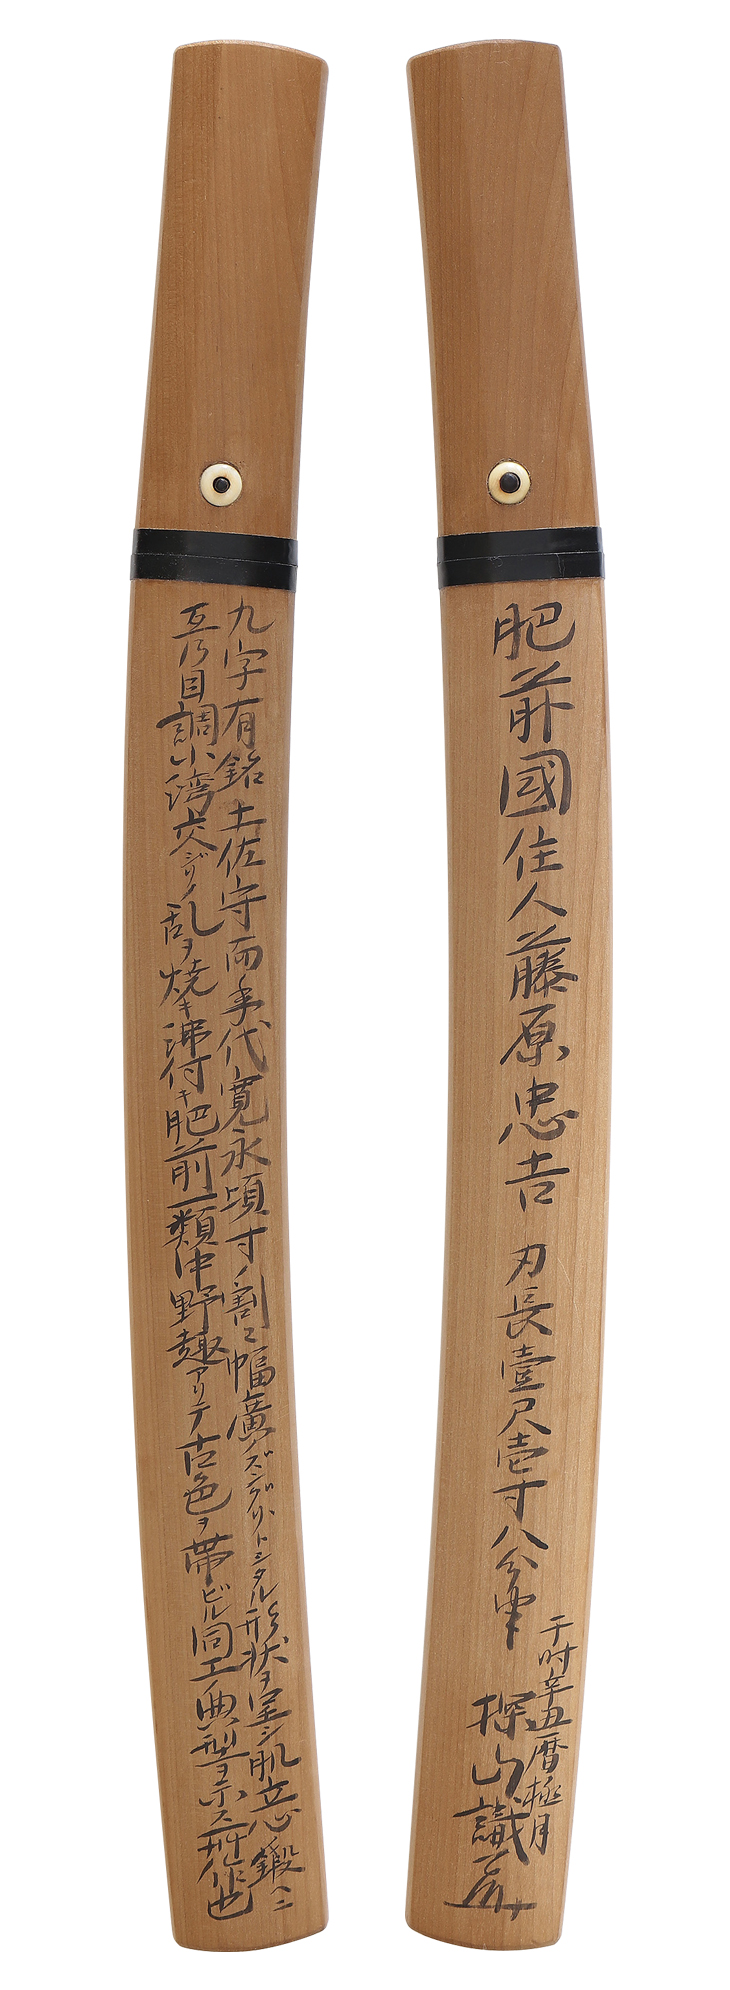 肥前國住人藤原忠吉 刃長壹尺壱寸八分
于時辛丑暦極月
探山識
九字有銘土佐守而年代寛永頃寸ノ割ニ幅廣ノズングリトシタル形状ヲ呈シ肌立心ノ鍛ヘニ
互乃目調小湾交ジリノ乱ヲ焼キ沸付キ肥前一類中野趣アリテ古色ヲ帯ビル同工典型ヲ示ス作也